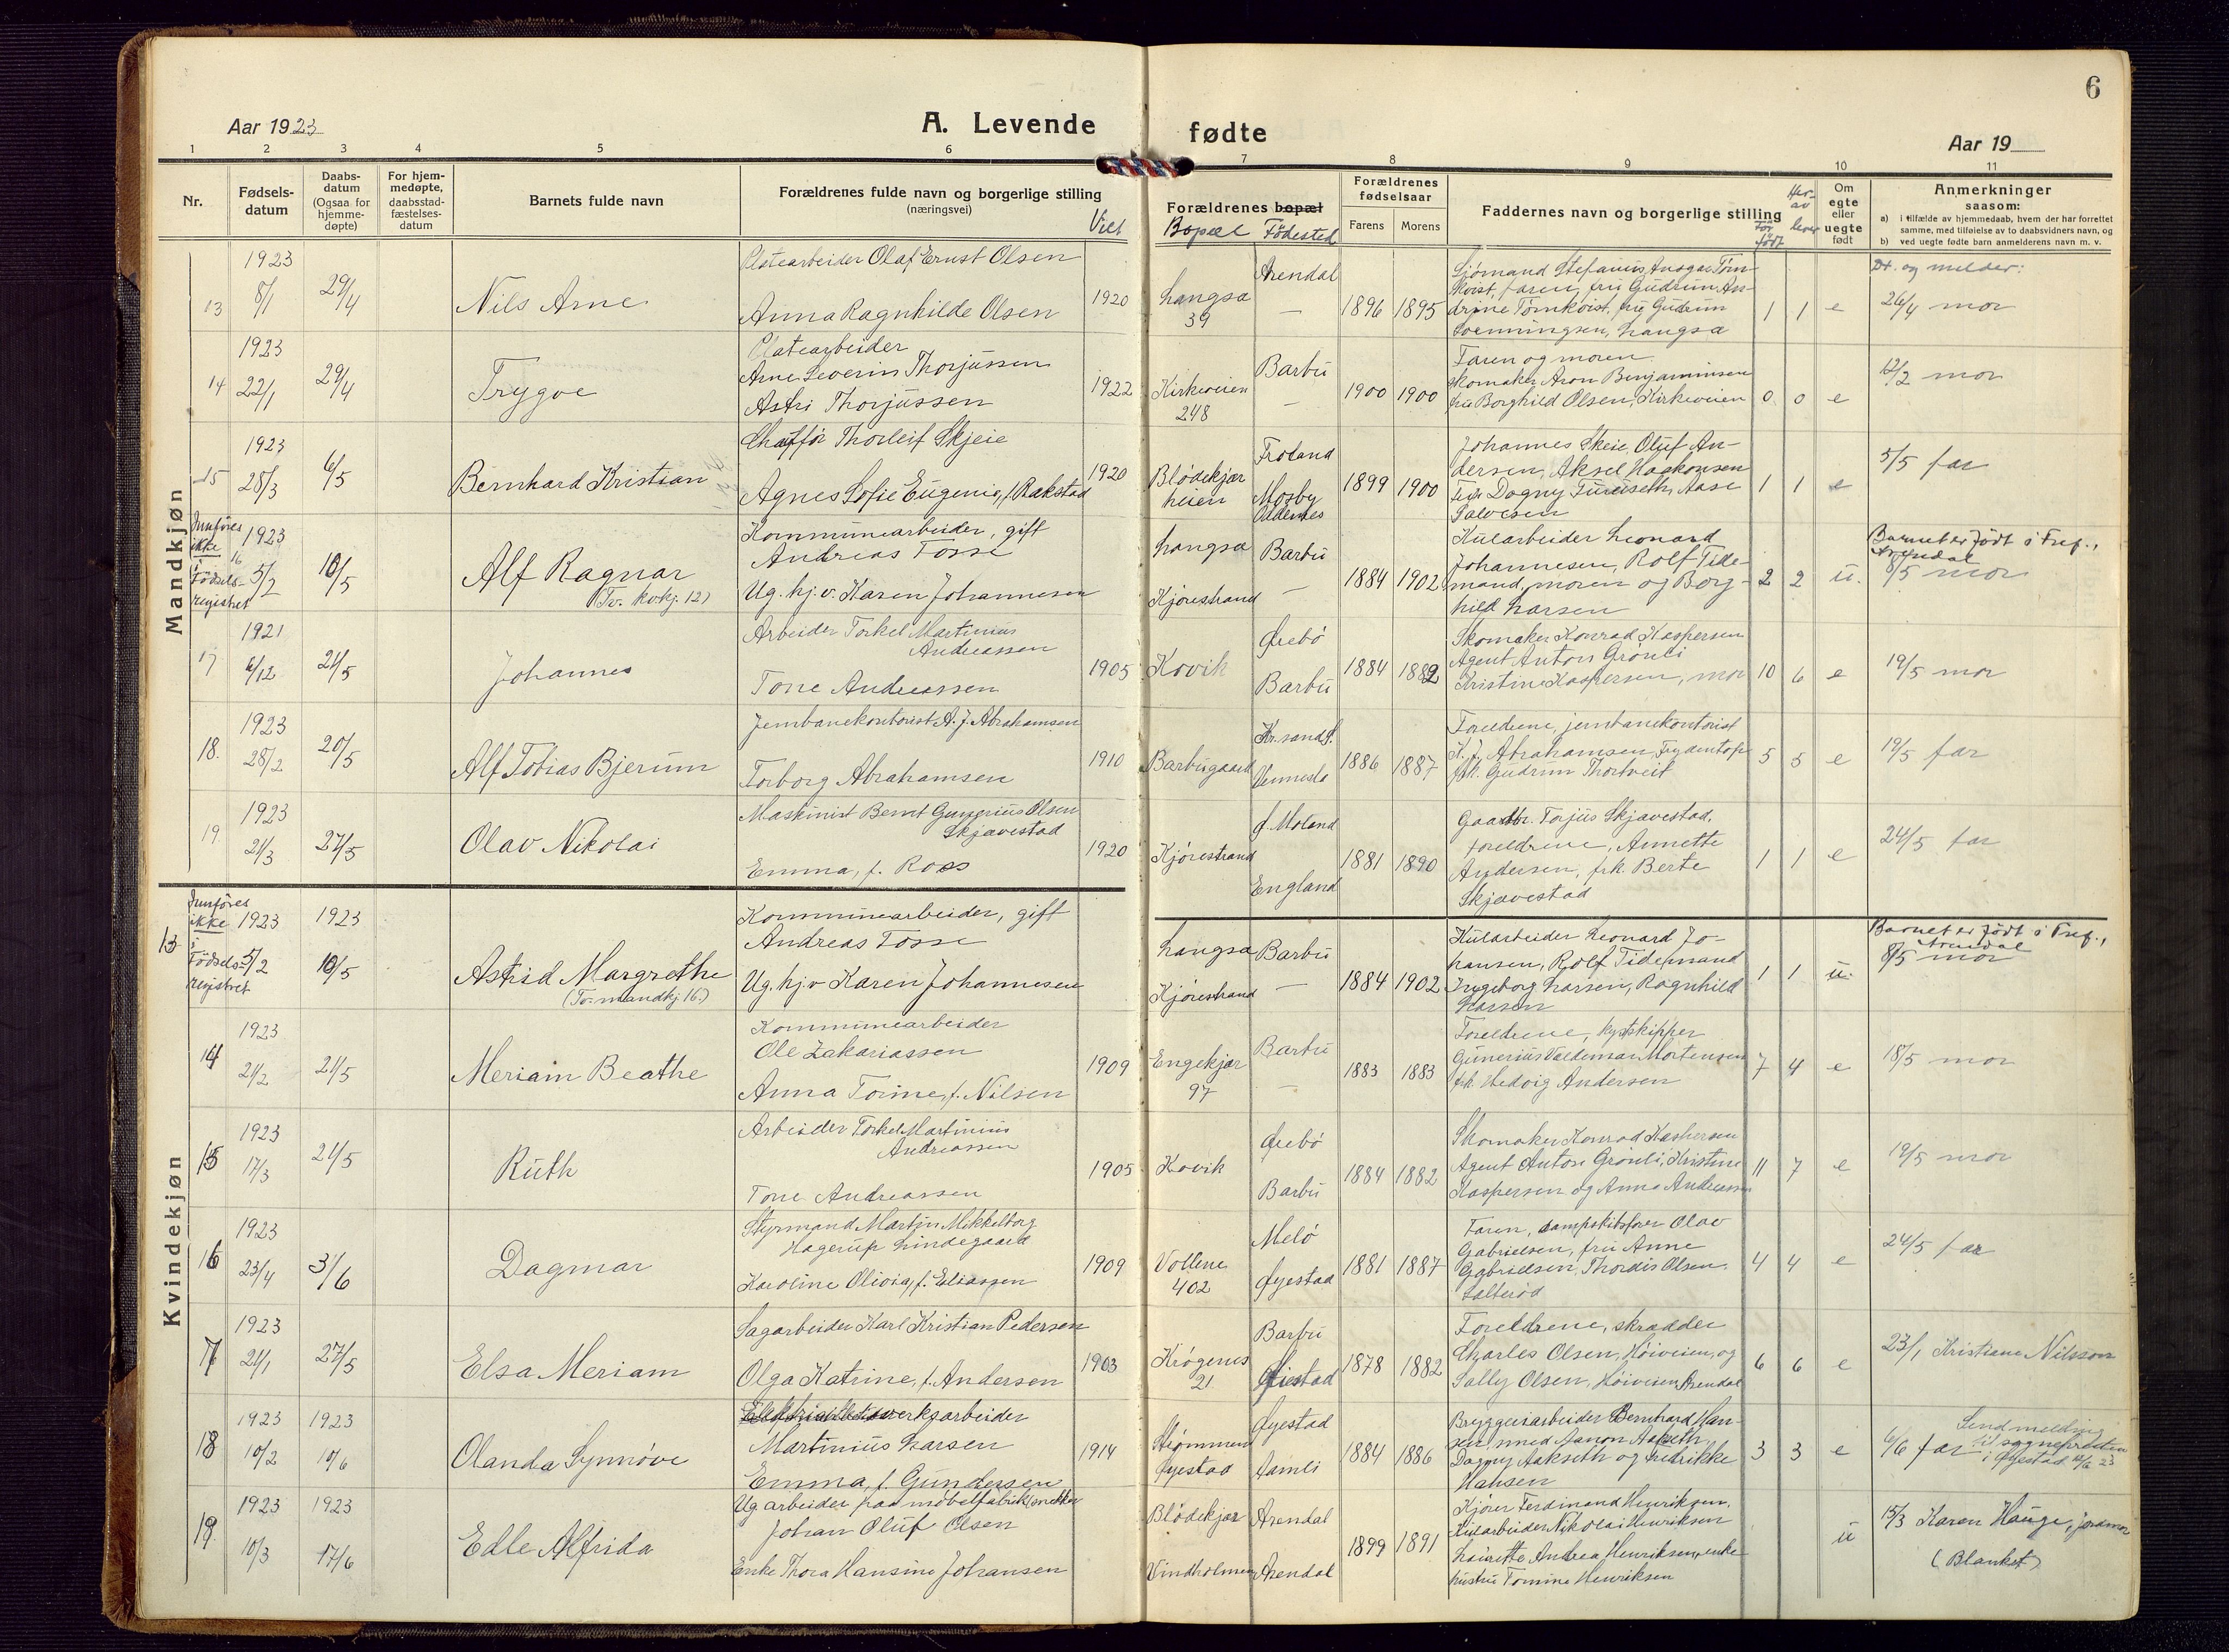 6
Aar 1923
A. Levende fødte
Aar 19
1 2 3 4 5 6 7 8 9 10 11
Nr.
Fødsels-datum
Daabs-datum (Ogsaa for hjemme-døpte)
For hjem-medøpte, daabsstad-fæstelses-datum
Barnets fulde navn
Forældrenes fulde navn og borgerlige stilling
(næringsvei)
Viet
Forældrenes bopæl
Bopæl Födested
Forældrenes fødselsaar
Farens Morens
Faddernes navn og borgerlige stilling
Før født
Her-av lever
Om egte eller uegte født
Anmerkninger saasom:
a) i tilfælde av hjemmedaab, hvem der har forrettet samme, med tilføielse av to daabsvidners navn, og
b) ved uegte fødte barn anmelderens navn m. v.
Mandkjøn
13 1923 8/1 29/4 Nils Arne
Platearbeider Olaf Ernst Olsen
Anna Ragnhilde Olsen
1920 Langsæ 39 Arendal — 1896 1895
Sjömand Stefanius Ansgar Törn-
koist, faren, fru Gudrun An-
drine Törnkoist, fru Gudrun
Svenningsen, Langsæ
1 1 e
Dt. og melder:
26/4 mor
14 1923 22/1 29/4 Trygve
Platearbeider
Arne Severin Thorjussen
Astri Thorjussen
1922 Kirkeveien 248 Barbu — 1900 1900
Faren og moren
skomaker Aron Benjaminsen
fru Borghild Olsen, Kirkeveien
0 0 e 12/2 mor
15 1923 28/3 6/5 Bernhard Kristian
Chaufför Thorleif Skjeie
Agnes Sofie Eugenie, f. Rakstad
1920 Blödekjær heien Froland Mosby Oddernes 1899 1900
Johannes Skeie, Oluf An-
dersen, Aksel Haakonsen
Fru Dagny Tureseth, Aase
Salvesen
1 1 e 5/5 far
Innföres ikke i Födsels-registret
16 1923 5/2 10/5 Alf Ragnar
(Tv. kvkj. 12)
Kommunearbeider, gift
Andreas Tosse
Ug. hj. v. Karen Johannesen
Langsæ Kjörestrand Barbu — 1884 1902
Kularbeider Leonard
Johannesen, Rolf Tide-
mand, moren og Borg-
hild Larsen
2 2 u.
Barnet er födt i Fref., Arendal
8/5 mor
17 1921 6/12 21/5 Johannes
Arbeider Torkel Martinius
Andreassen
Tone Andreassen
1905 Kovik Örebö Barbu 1884 1882
Skomaker Konrad Kaspersen
Agent Anton Grönli
Kristine Kaspersen, mor
10 6 e 19/5 mor
18. 1923 28/2 20/5 Alf Tobias Bjerum
Jernbanekontorist A. J. Abrahamsen
Torborg Abrahamsen
1910 Barbugaard Kr.sand S. Vennesla 1886 1887
Foreldrene, jernbanekontorist
K. J. Abrahamsen, Frydentop
frk. Gudrun Thortveit
5 5 e 19/5 far
19 1923 21/3 27/5 Olav Nikolai
Maskinist Bernt Gunerius Olsen
Skjævestad
Emma, f. Ross
1920 Kjörestrand Ö. Moland England 1881 1890
Gaardbr. Torjus Skjævestad,
foreldrene, Annette
Andersen, frk. Berte
Skjævestad
1 1 e 24/5 far
Kvindekjøn
Innföres ikke i Födsels-registret
13 1923 5/2 1923 10/5 Astrid Margrethe
(Tv. mandkj. 16.)
Kommunearbeider, gift
Andreas Tosse
Ug. hj. v Karen Johannesen
Langsæ Kjörestrand Barbu — 1884 1902
Kularbeider Leonard Jo-
hansen, Rolf Tidemand
Ingeborg Larsen, Ragnhild
Larsen
1 1 u.
Barnet er födt i Fref., Arendal
8/5 mor
14 1923 21/2 21/5 Meriam Beathe
Kommunearbeider
Ole Zakariassen
Anna Tomine, f. Nilsen
1909 Engekjær 97 Barbu — 1883 1883
Foreldrene, kystskipper
Gunerius Valdemar Mortensen
frk. Hedvig Andersen
7 4 e 18/5 mor
15 1923 17/3 21/5 Ruth
Arbeider Torkel Martinius
Andreassen
Tone Andreassen
1905 Kovik Örebö Barbu 1884 1882
Skomaker Konrad Kaspersen
Agent Anton Grönli, Kristine
Kaspersen og Anna Andreassen
11 7 e 19/5 mor
16 1923 23/4 3/6 Dagmar
Styrmand Martin Mikkelborg
Hagerup Lindegaard
Karoline Olivia, f. Eliassen
1909 Vollene 402 Melö Øyestad 1881 1887
Faren, dampskibsförer Olav
Gabrielsen, fru Anne
Gabrielsen, Thordis Olsen,
Salteröd
4 4 e 24/5 far
17 1923 21/1 27/5 Elsa Meriam
Sagarbeider Karl Kristian Pedersen
Olga Katrine, f. Andersen
1903 Krögenes 21 Barbu Øiestad 1878 1882
Foreldrene, skrædder
Charles Olsen, Höiveien, og
Sally Olsen, Höiveien, Arendal
6 6 e 23/1 Kristiane Nilsson
18 1923 10/2 1923 10/6 Olanda Synnöve
Elektricitetsverksarbeider
Martinius Larsen
Emma, f. Gundersen
1914 Strömmen Øyestad Øyestad Aamli 1884 1886
Bryggeriarbeider Bernhard Han-
sen, med Aanon Aakseth,
Dagny Aakseth og Fredrikke
Hansen
3 3 e 6/6 far
Send melding til sognepresten i Øyestad 12/6 23
19. 1923 10/3 1923 17/6 Edle Alfrida
Ug arbeider paa möbelfabrik, snekker
Johan Oluf Olsen
Enke Thora Hansine Johansen
Blödekjær Vindholmen Arendal Arendal 1899 1891
Kjörer Ferdinand Henriksen,
Kularbeider Nikolai Henriksen
Laurette Andrea Henriksen, enke
hustru Tomine Henriksen
u 15/3 Karen Hauge, jordmor
(Blanket)